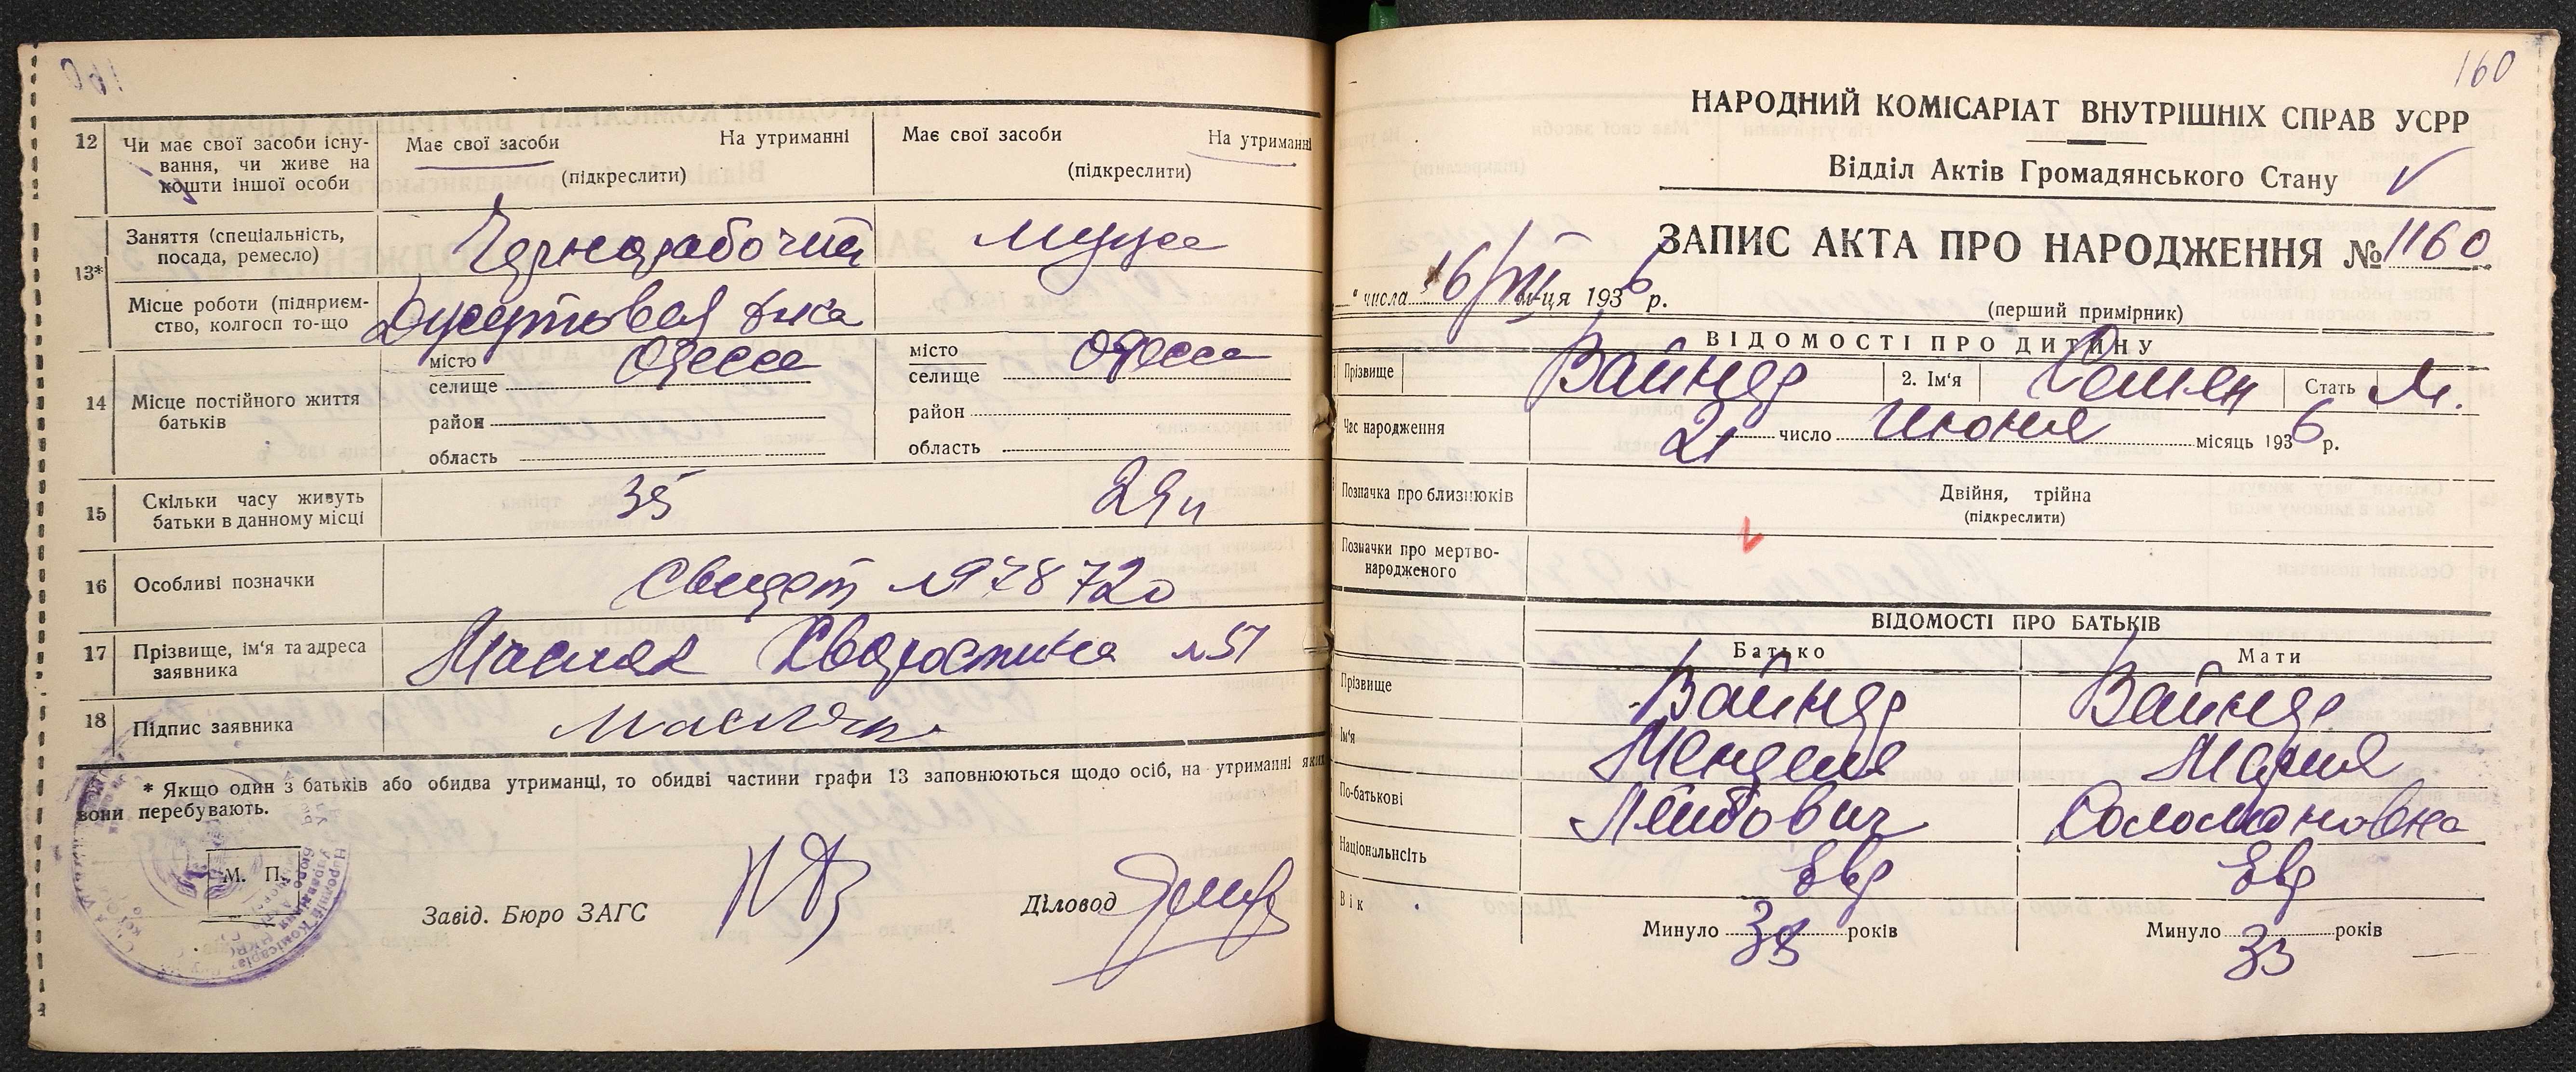 12
Чи має свої засоби існу-
вання, чи живе на
кошти іншої особи
Має свої засоби На утриманні
(підкреслити)
Має свої засоби На утриманні
(підкреслити)
13*
Заняття (спеціальність,
посада, ремесло)
Чернорабочий
мужа
Місце роботи (підприєм-
ство, колгосп то-що
Джутовая фка
14
Місце постійного життя
батьків
місто Одесса
селище
район
область
місто Одесса
селище
район
область
15
Скільки часу живуть
батьки в данному місці
35
29 л
16
Особливі позначки
Свидет №978720
17
Прізвище, ім'я та адреса
заявника
Масляк Хворостина №51
18
Підпис заявника
Масляк
* Якщо один з батьків або обидва утриманці, то обидві частини графи 13 заповнюються щодо осіб, на утриманні яких
вони перебувають.
М. П.
Завід. Бюро ЗАГС
Діловод
160
НАРОДНИЙ КОМІСАРІАТ ВНУТРІШНІХ СПРАВ УСРР
Відділ Актів Громадянського Стану
ЗАПИС АКТА ПРО НАРОДЖЕННЯ № 1160
" числа 16/VII м-ця 1936 р.
(перший примірник)
ВІДОМОСТІ ПРО ДИТИНУ
Прізвище Вайнер 2. Ім'я Семен Стать М.
Час народження 21 число Июня місяць 1936 р.
Позначка про близнюків
Двійня, трійна
(підкреслити)
Позначки про мертво-
народженого
ВІДОМОСТІ ПРО БАТЬКІВ
Батько Мати
Прізвище Вайнер Вайнер
Ім'я Менделя Мария
По-батькові Лейбович Соломоновна
Національність Евр Евр
Вік
Минуло 38 років
Минуло 33 років